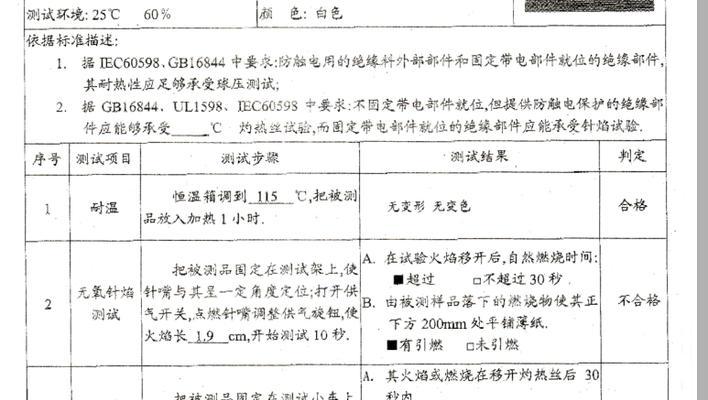 测试环境: 25℃ 60%
颜 色: 白色
依据标准描述:
1. 据 IEC60598、GB16844 中要求:防触电用的绝缘料外部部件和固定带电部件就位的绝缘部件,
其耐热性应足够承受球压测试;
2. 据 GB16844、UL1598、IEC60598 中要求:不固定带电部件就位,但提供防触电保护的绝缘部
件应能够承受_____℃ 灼热丝试验,而固定带电部件就位的绝缘部件应能承受针焰试验.
序号 测试项目 测试步骤 测试结果 判定
1 耐温
恒温箱调到 115 ℃,把被测
品放入加热 1 小时.
无变形 无变色
合格
2
无氧针焰
测试
把被测品固定在测试架上,使
针嘴与其呈一定角度定位;打开供
气开关,点燃针嘴调整供气旋钮,使
火焰长 1.9 cm,开始测试 10 秒.
A. 在试验火焰移开后,自然燃烧时间:
■超过 □不超过 30 秒.
B. 由被测样品落下的燃烧物使其正
下方 200mm 处平铺薄纸.
■有引燃 □未引燃
不合格
把被测品固定在测试小车上
A. 其火焰或燃烧在移开灼热丝后 30
秒内